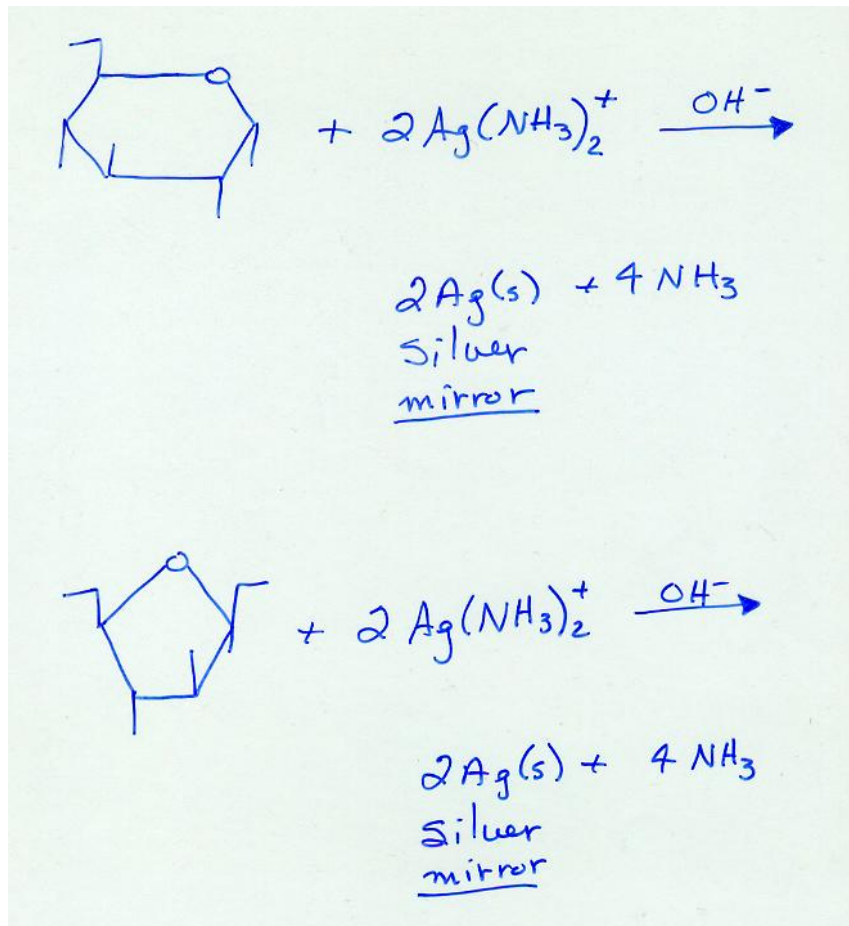 O + 2 Ag(NH₃)₂⁺ OH⁻
2Ag(s) + 4 NH₃
silver
mirror
O + 2 Ag(NH₃)₂⁺ OH⁻
2Ag(s) + 4 NH₃
silver
mirror